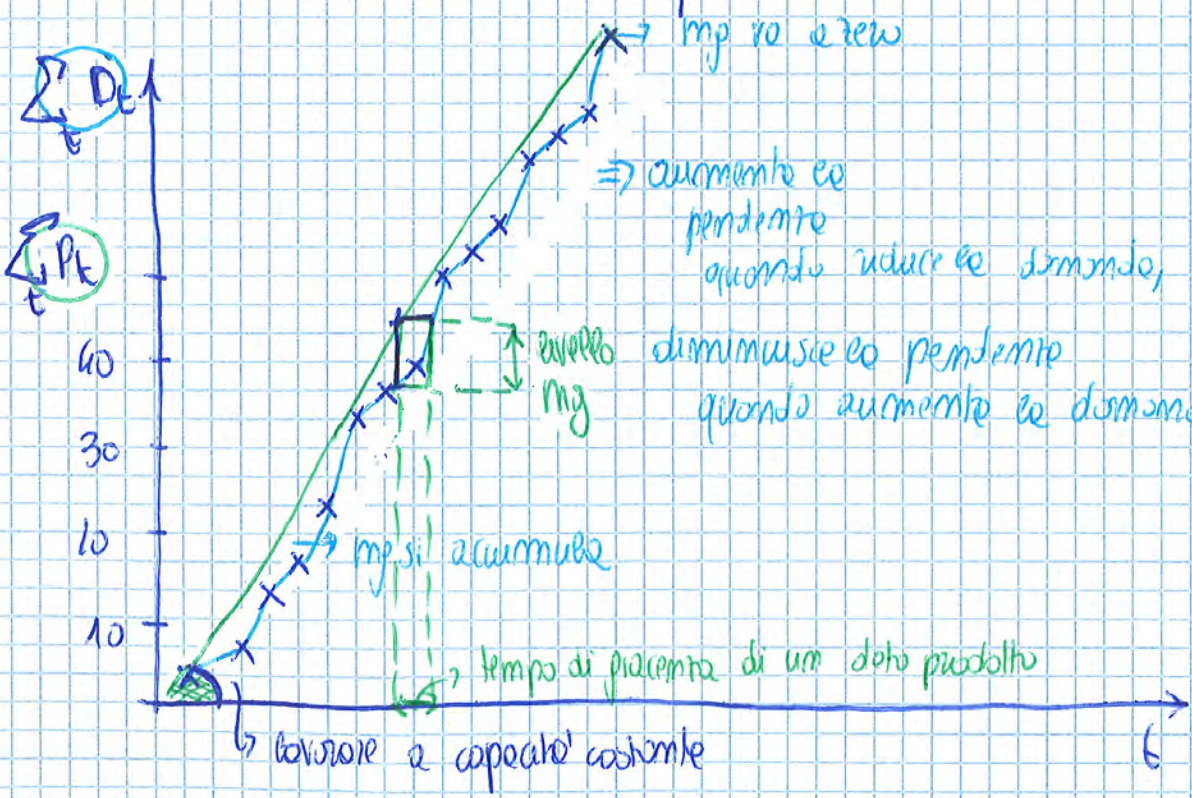 mp va a zero
Σ Dt
t
⇒ aumenta la
pendenza
quando riduce la domanda,
Σ Pt
t
40
livello
mg
diminuisce la pendenza
quando aumenta la doman
30
20
mp si accumula
10
tempo di giacenza di un dato prodotto
lavorare a capacità costante
t